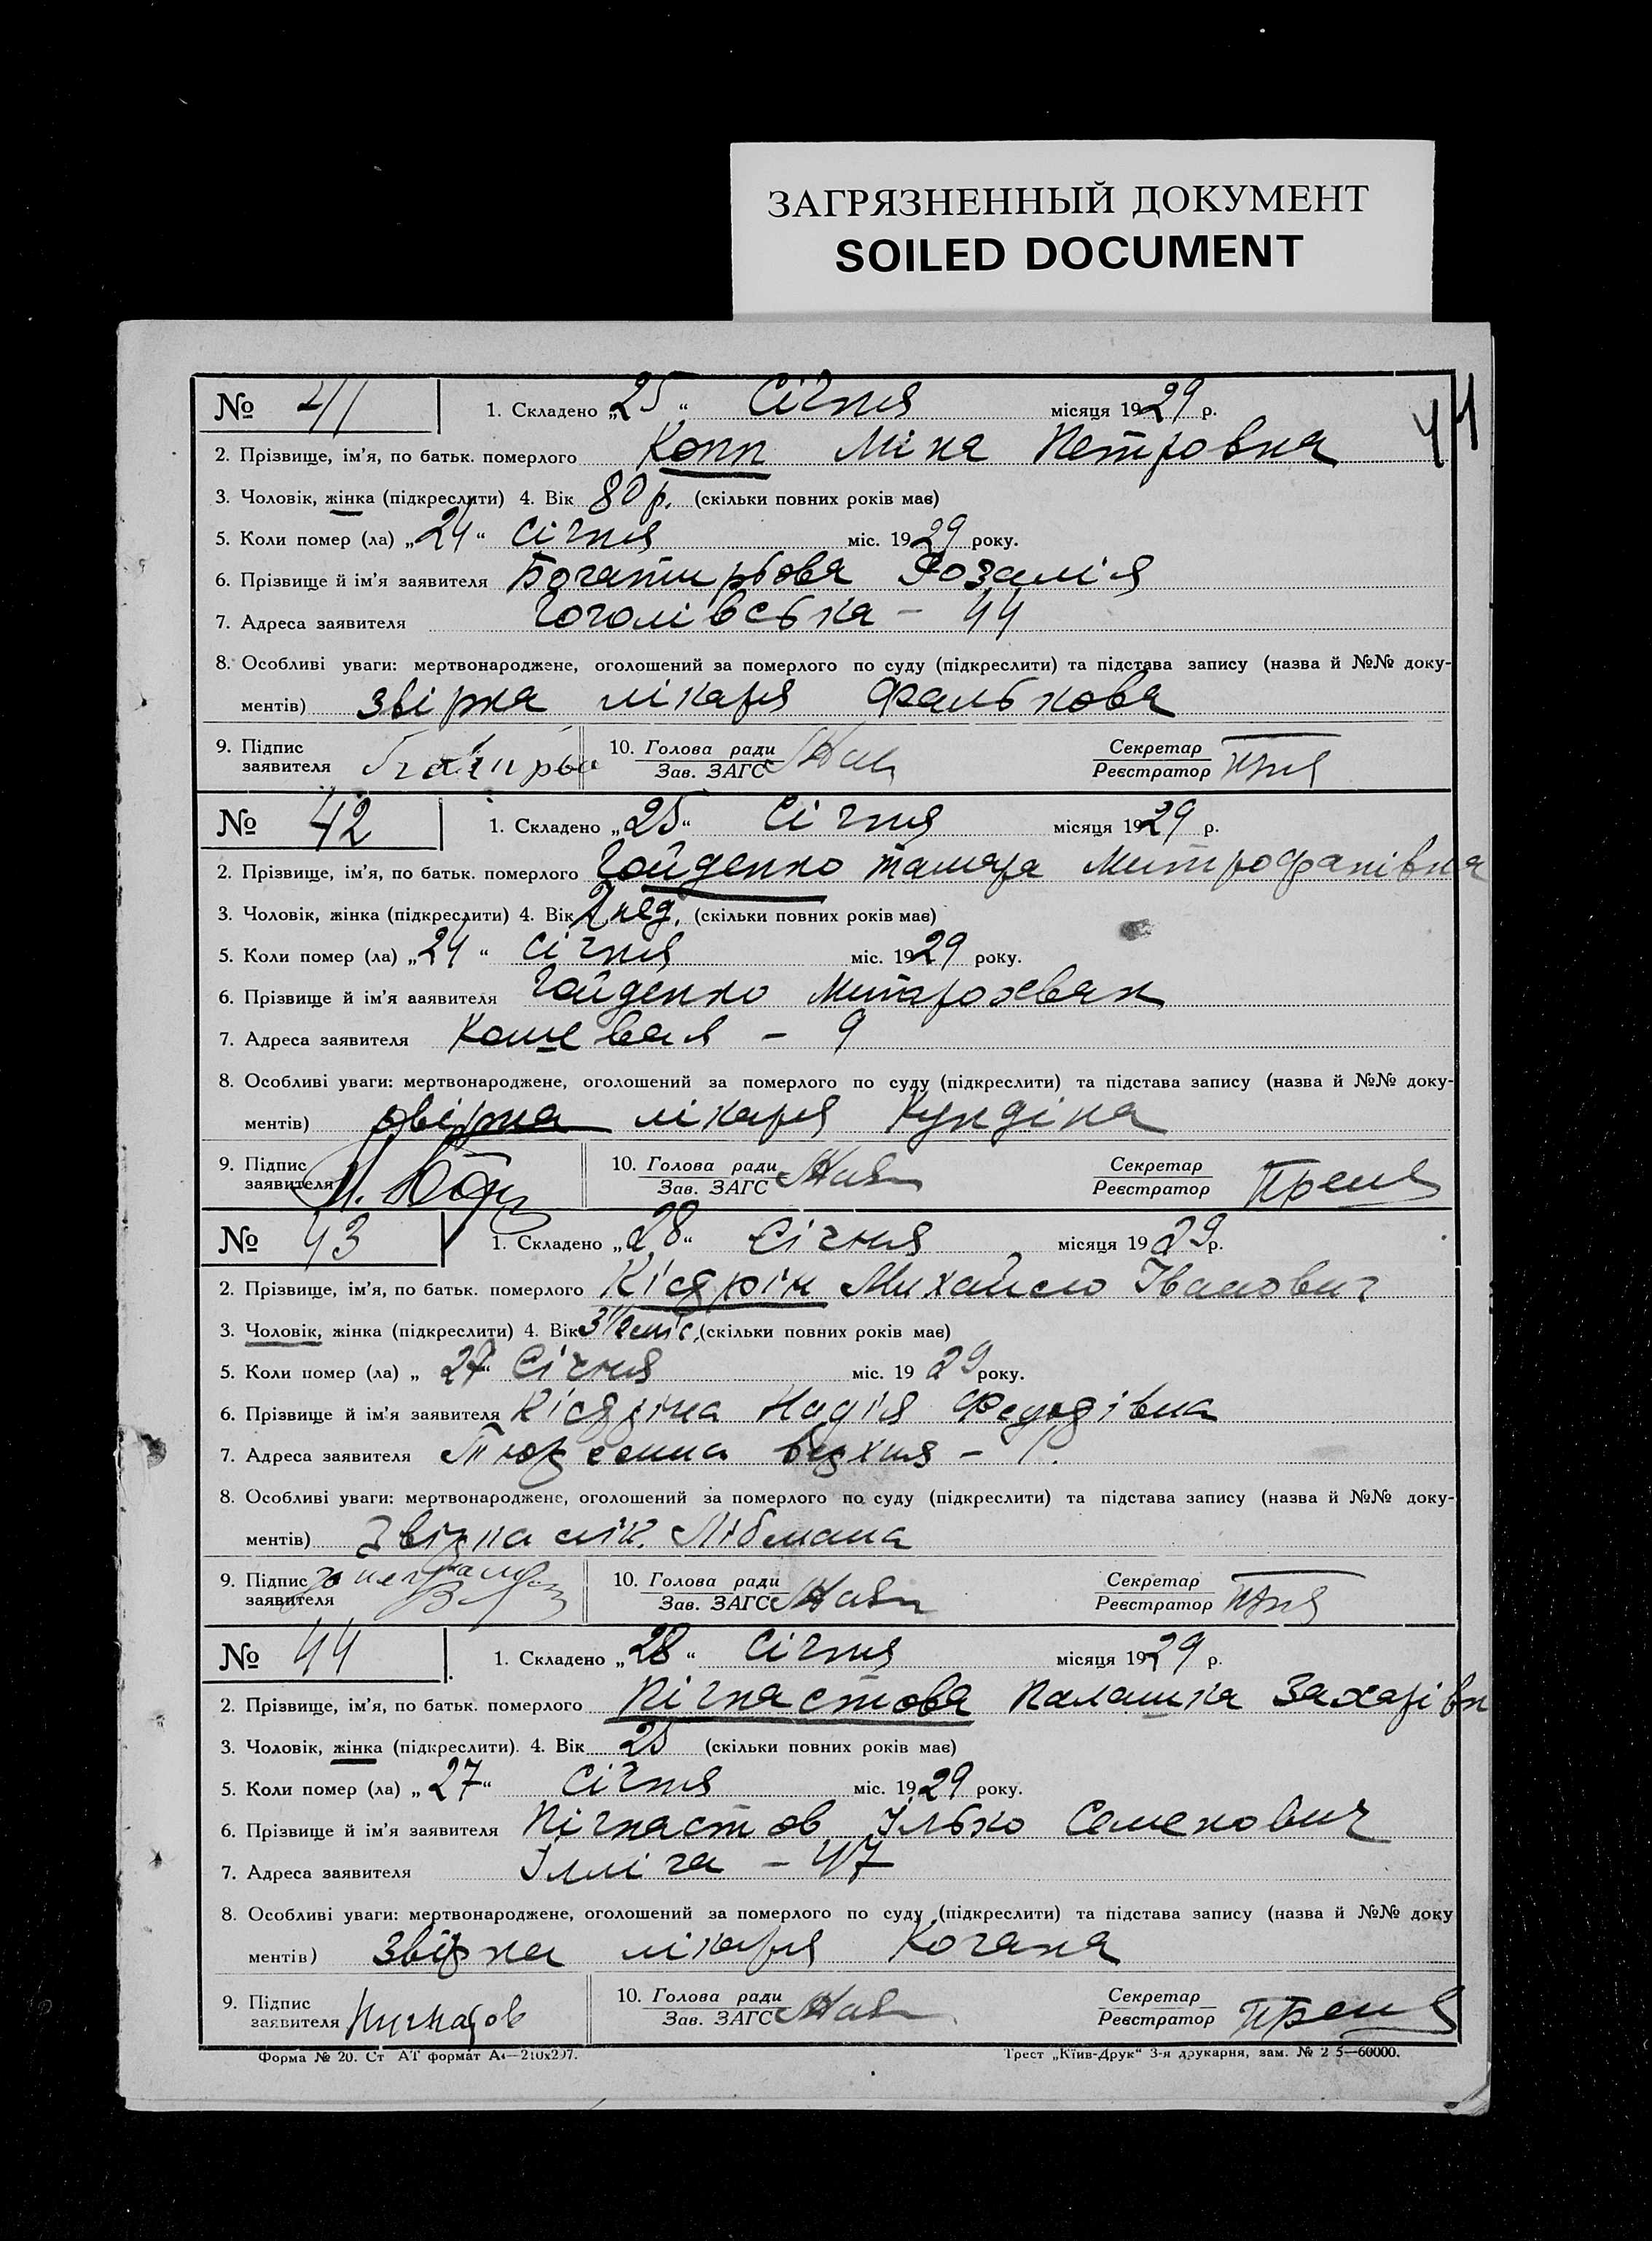 ЗАГРЯЗНЕННЫЙ ДОКУМЕНТ
SOILED DOCUMENT
41
№ 41 1. Складено „25“ Січня місяця 1929 р.
2. Прізвище, ім’я, по батьк. померлого Копп Міна Петровна
3. Чоловік, жінка (підкреслити) 4. Вік 80 р. (скільки повних років має)
5. Коли помер (ла) „24“ Січня міс. 1929 року.
6. Прізвище й ім’я заявителя Богатирьова Розалія
7. Адреса заявителя Гоголівська – 44
8. Особливі уваги: мертвонароджене, оголошений за померлого по суду (підкреслити) та підстава запису (назва й №№ доку-
ментів) звірка лікаря Фалькова
9. Підпис заявителя 10. Голова ради Зав. ЗАГС Секретар Реєстратор
№ 42 1. Складено „25“ Січня місяця 1929 р.
2. Прізвище, ім’я, по батьк. померлого Гайденко Тамара Митрофанівна
3. Чоловік, жінка (підкреслити) 4. Вік 2 нед. (скільки повних років має)
5. Коли помер (ла) „24“ Січня міс. 1929 року.
6. Прізвище й ім’я заявителя Гайденко
7. Адреса заявителя Кошевая – 9
8. Особливі уваги: мертвонароджене, оголошений за померлого по суду (підкреслити) та підстава запису (назва й №№ доку-
ментів) звірка лікаря Кундіна
9. Підпис заявителя 10. Голова ради Зав. ЗАГС Секретар Реєстратор
№ 43 1. Складено „28“ Січня місяця 1929 р.
2. Прізвище, ім’я, по батьк. померлого Кісярін Михайло Іванович
3. Чоловік, жінка (підкреслити) 4. Вік 3 1/2 міс. (скільки повних років має)
5. Коли помер (ла) „27“ Січня міс. 1929 року.
6. Прізвище й ім’я заявителя Кісяріна Надія Федорівна
7. Адреса заявителя Тюремна верхня –
8. Особливі уваги: мертвонароджене, оголошений за померлого по суду (підкреслити) та підстава запису (назва й №№ доку-
ментів) Звірка лік. Лібмана
9. Підпис заявителя 10. Голова ради Зав. ЗАГС Секретар Реєстратор
№ 44 1. Складено „28“ Січня місяця 1929 р.
2. Прізвище, ім’я, по батьк. померлого Пігнастова Палашка Захарівн
3. Чоловік, жінка (підкреслити). 4. Вік 25 (скільки повних років має)
5. Коли помер (ла) „27“ Січня міс. 1929 року.
6. Прізвище й ім’я заявителя Пігнастов Ілько Семенович
7. Адреса заявителя Ілліча – 47
8. Особливі уваги: мертвонароджене, оголошений за померлого по суду (підкреслити) та підстава запису (назва й №№ доку
ментів) Звірка лікаря Когана
9. Підпис заявителя 10. Голова ради Зав. ЗАГС Секретар Реєстратор
Форма № 20. Ст АТ формат А4—210х297. Трест „Київ-Друк“ 3-я друкарня, зам. № 2 5—60000.